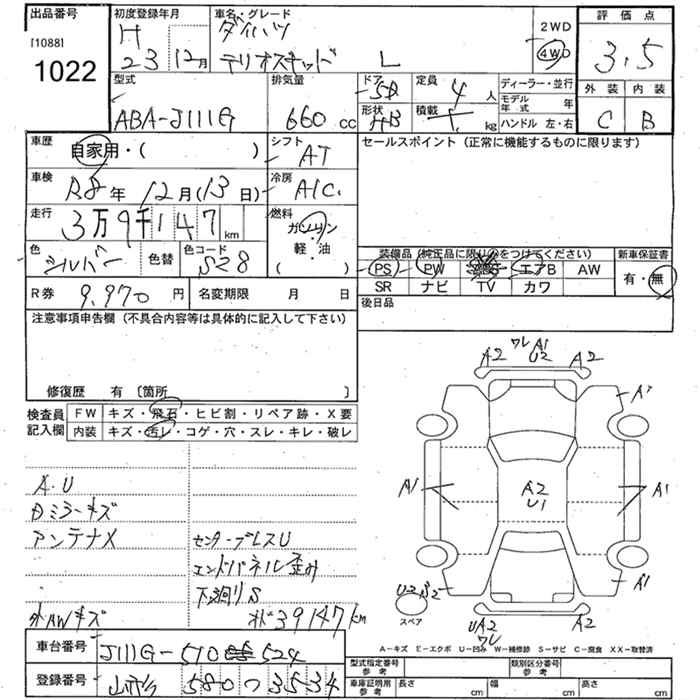 出品番号
[1088]
1022
初度登録年月
H
23 12月
車名・グレード
ダイハツ
テリオスキッド L
2WD
4WD
評価点
3.5
外装 内装
C B
型式
ABA-J111G
排気量
660 cc
ドア
5D
形状
HB
定員
4 人
積載
kg
ディーラー・並行
モデル年式 年
ハンドル 左・右
車歴
自家用・( )
シフト
AT
セールスポイント (正常に機能するものに限ります)
車検
R8年 12月(13日)
冷房
A/C
走行
3万9千147km
燃料
ガソリン
・
軽・油
( )
色
シルバー
色替
色コード
S28
装備品 (純正品に限り○をつけてください)
PS PW エアB AW
SR ナビ TV カワ
新車保証書
有・無
R券
9,970 円
名変期限 月 日
後日品
注意事項申告欄 (不具合内容等は具体的に記入して下さい)
修復歴 有 〔箇所 〕
検査員
記入欄
FW キズ・飛石・ヒビ割・リペア跡・X要
内装 キズ・汚レ・コゲ・穴・スレ・キレ・破レ
A.U
ミラーキズ
アンテナX
センタープレスU
エンドパネル歪み
下廻りS
AWキズ
39147km
A2 ワレ A1 U2 A2
A1
A1
A2
U1
A1
U2 S2
A1
スペア
UA2
ワレ
A2
A-キズ E-エクボ U-凹み W-補修跡 S-サビ C-腐食 XX-取替済
車台番号
J111G-510 524
登録番号
山形 580 つ 3534
型式指定番号
参考
類別区分番号
参考
車庫証明用
参考
長さ cm
幅 cm
高さ cm